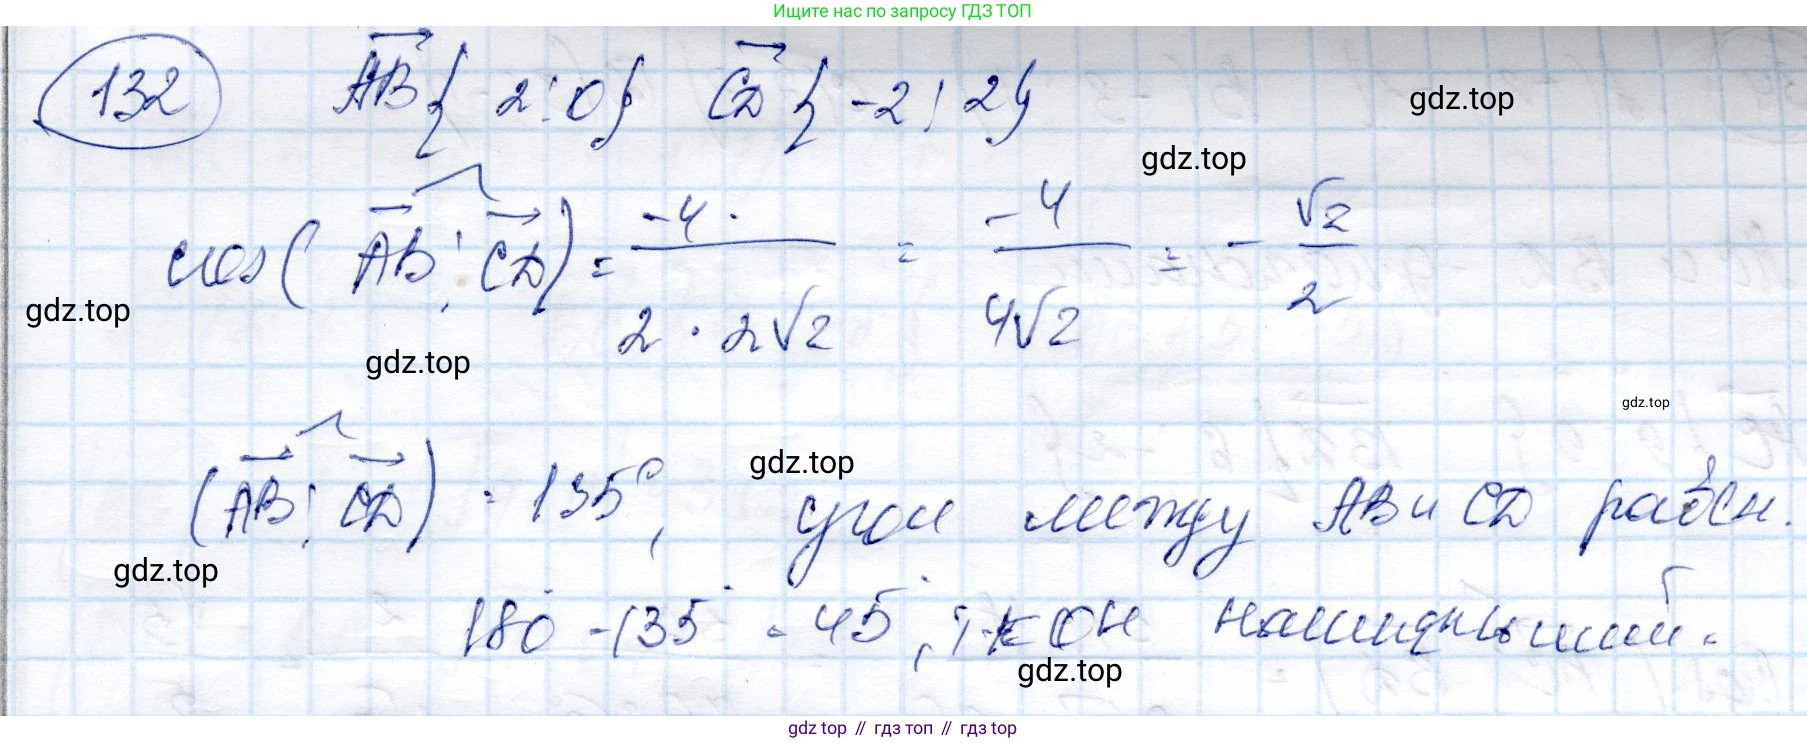 Ищите нас по запросу ГДЗ ТОП
132 AB{2; 0} CD{-2; 2}
gdz.top
gdz.top
cos(AB; CD) = -4 / 2 · 2√2 = -4 / 4√2 = -√2 / 2
gdz.top
gdz.top
gdz.top
gdz.top
(AB; CD) = 135°, угол между AB и CD равен.
gdz.top
180° - 135° = 45°, т.к он наименьший.
gdz.top
gdz top // гдз топ // gdz top